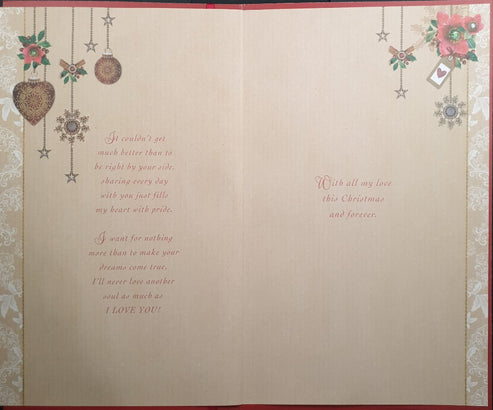 It couldn't get
much better than to
be right by your side,
sharing every day
with you just fills
my heart with pride.
I want for nothing
more than to make your
dreams come true,
I'll never love another
soul as much as
I LOVE YOU!
With all my love
this Christmas
and forever.